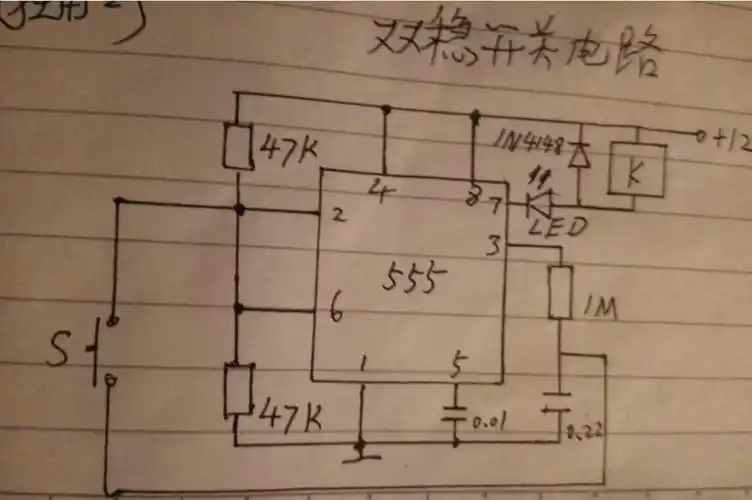 双稳开关电路
47K
1N4148
K
+12
4
8
7
LED
2
3
555
1M
6
S
1
5
47K
0.01
0.22